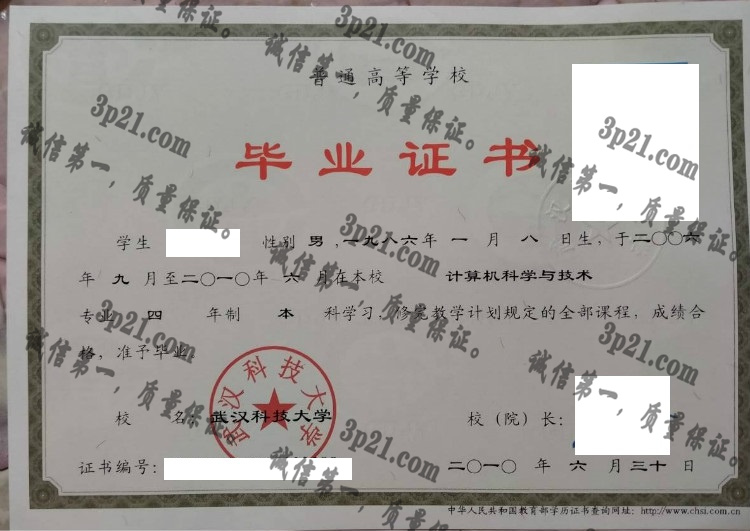 普通高等学校
毕业证书
学生 性别 男 ,一九八六年 一 月 八 日生, 于二〇〇六
年 九 月至二〇一〇年 六 月在本校 计算机科学与技术
专业 四 年制 本 科学习, 修完教学计划规定的全部课程, 成绩合
格, 准予毕业。
武汉科技大学
校 名: 武汉科技大学 校（院）长:
证书编号: 二〇一〇 年 六 月 三十 日
中华人民共和国教育部学历证书查询网址: http://www.chsi.com.cn
3p21.com
诚信第一，质量保证。
3p21.com
诚信第一，质量保证。
3p21.com
诚信第一，质量保证。
3p21.com
诚信第一，质量保证。
3p21.com
诚信第一，质量保证。
3p21.com
诚信第一，质量保证。
3p21.com
诚信第一，质量保证。
3p21.com
诚信第一，质量保证。
质量保证。